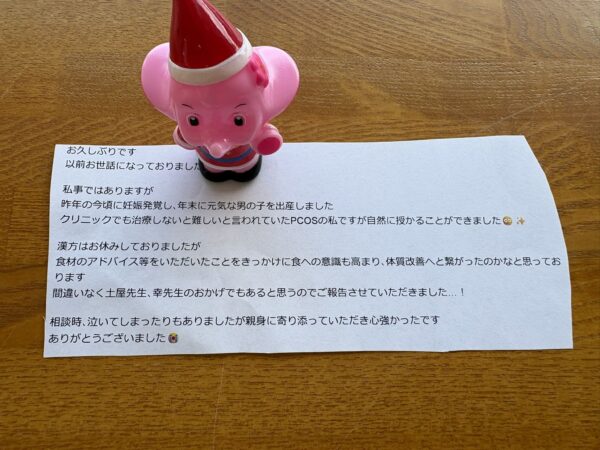 お久しぶりです
以前お世話になっておりました
私事ではありますが
昨年の今頃に妊娠発覚し、年末に元気な男の子を出産しました
クリニックでも治療しないと難しいと言われていたPCOSの私ですが自然に授かることができました🥹✨
漢方はお休みしておりましたが
食材のアドバイス等をいただいたことをきっかけに食への意識も高まり、体質改善へと繋がったのかなと思って
おります
間違いなく土屋先生、幸先生のおかげでもあると思うのでご報告させていただきました…！
相談時、泣いてしまったりもありましたが親身に寄り添っていただき心強かったです
ありがとうございました